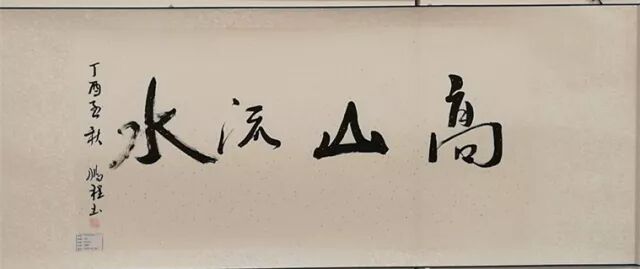 高山流水
丁酉孟秋 鹏程书